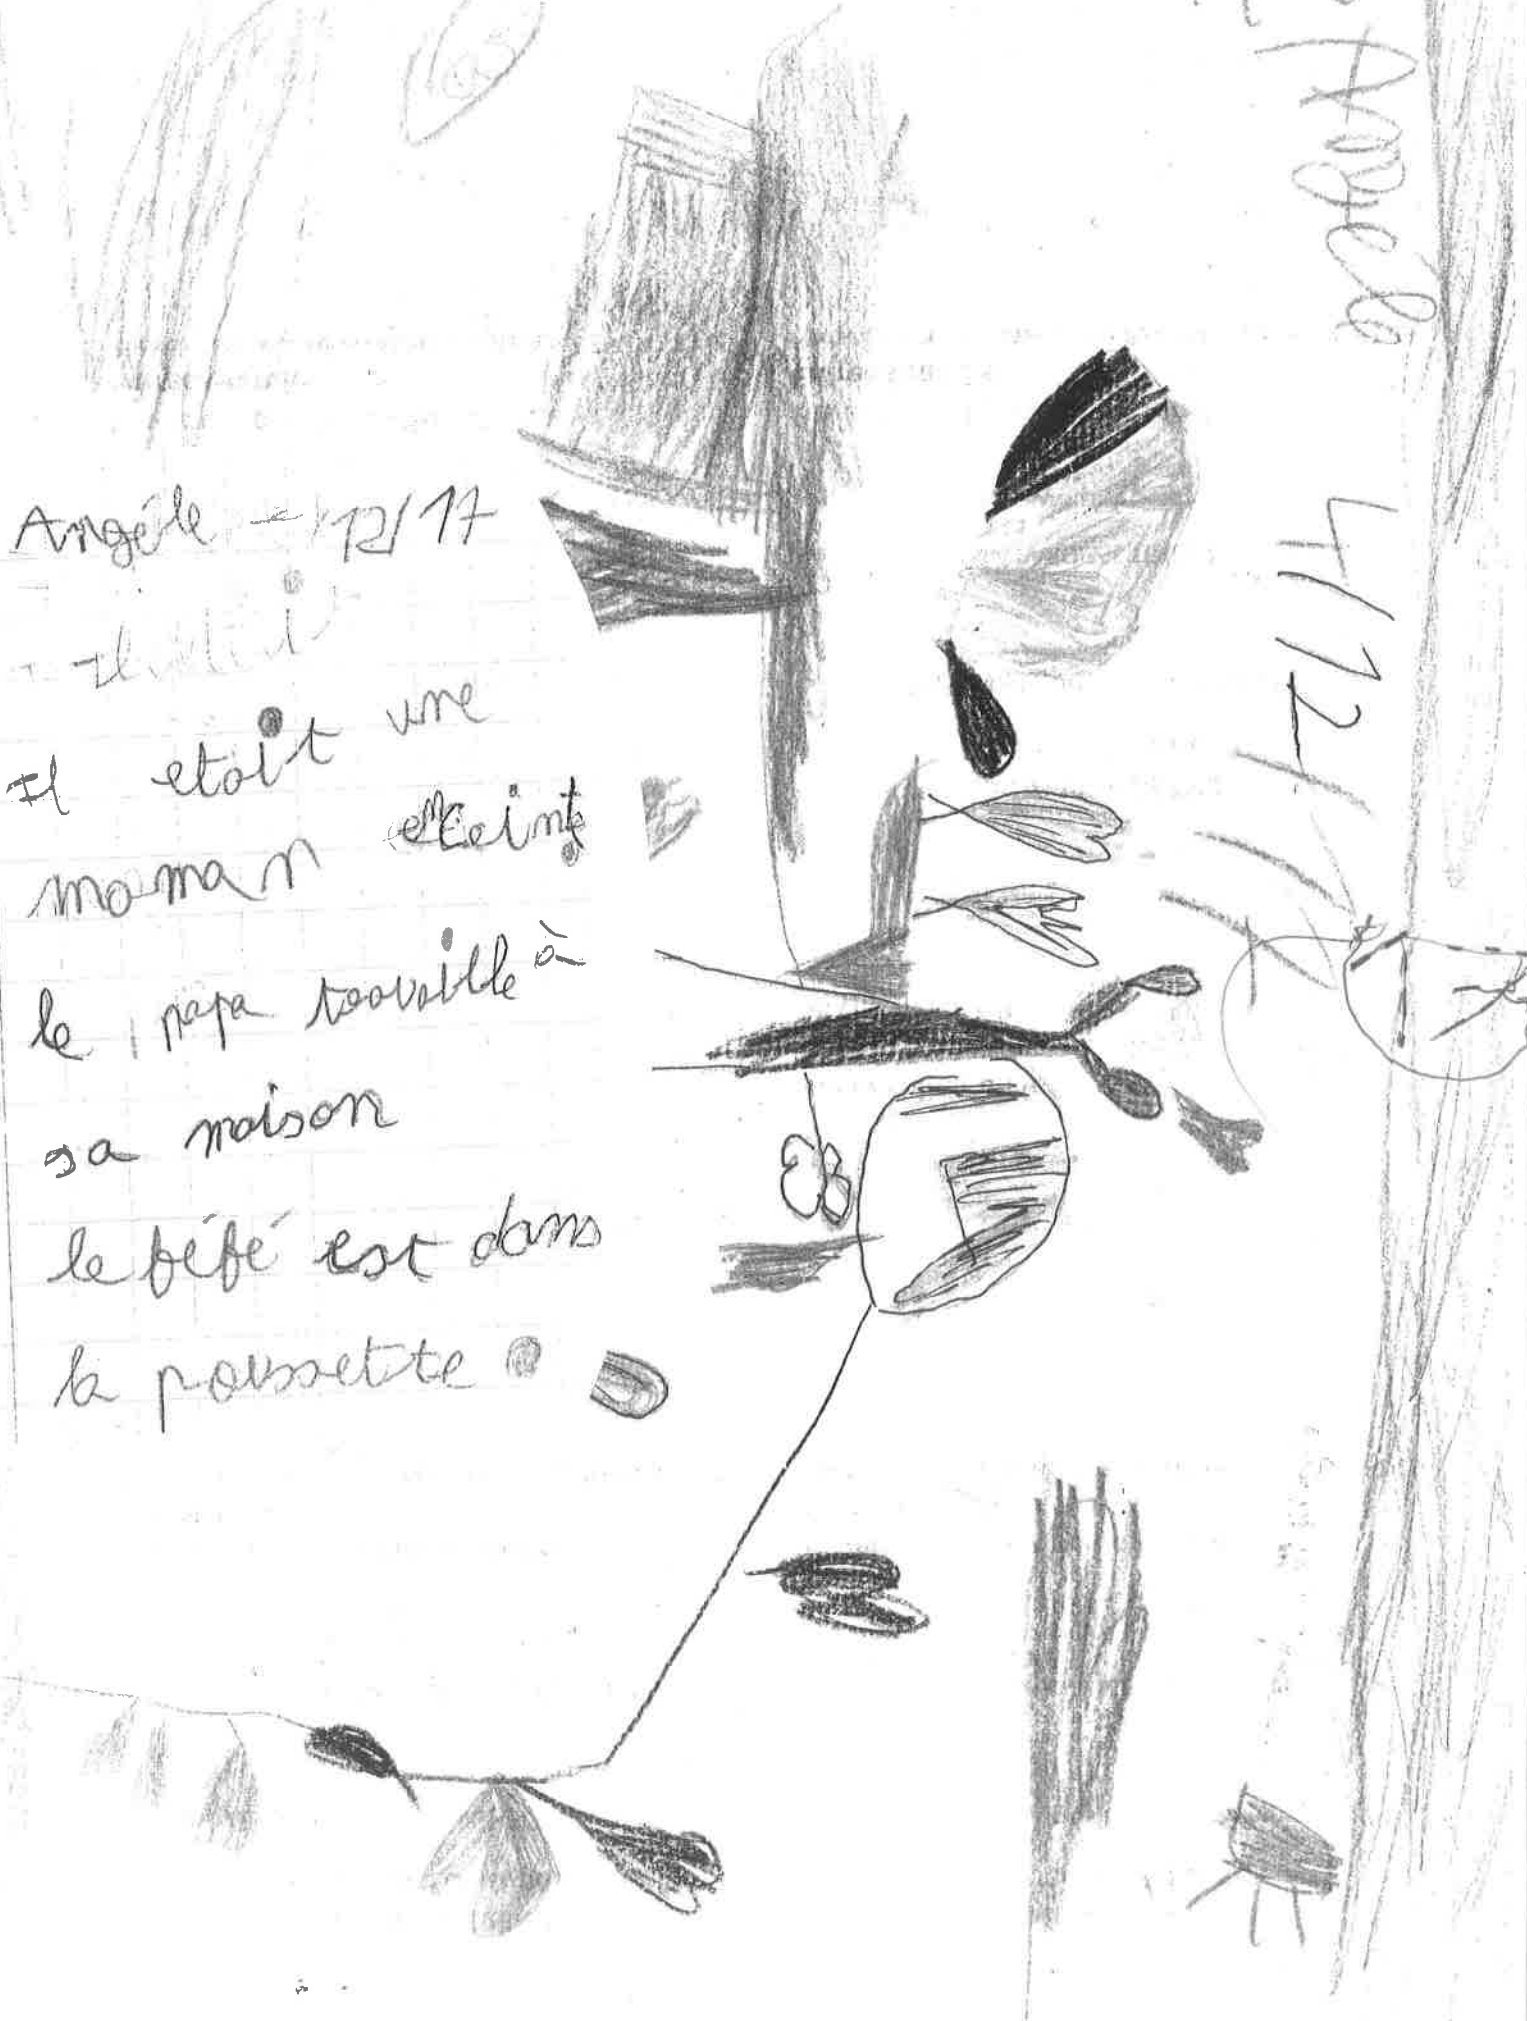 Angéle - 12/17
Il etait une
maman enceinte
le papa travaille à
sa maison
le bébé est dans
la poussette
Angele
4/12